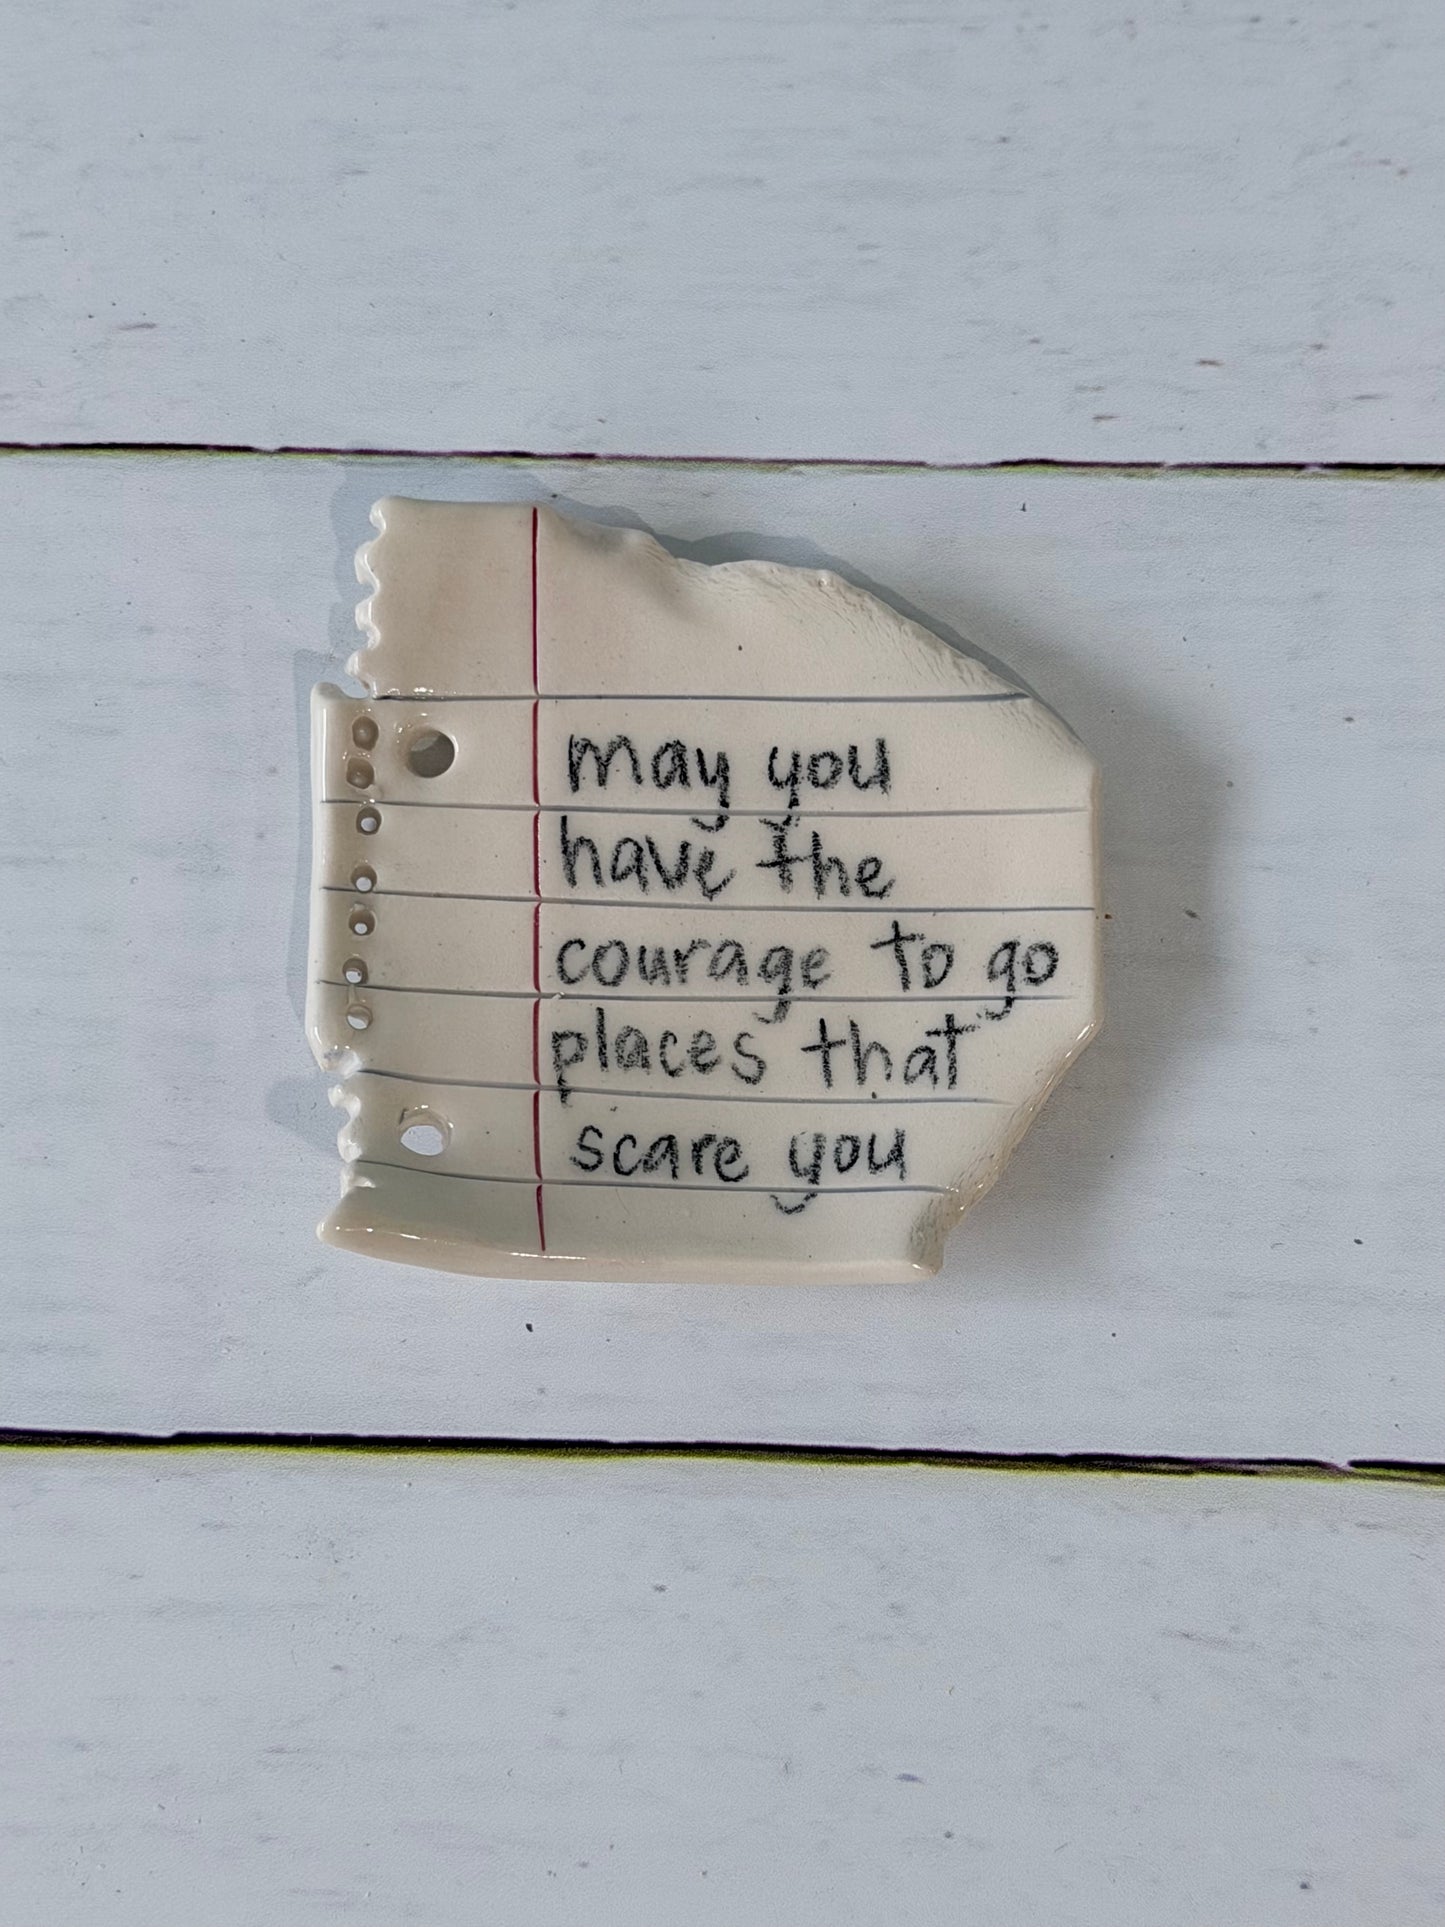 may you
have the
courage to go
places that
scare you